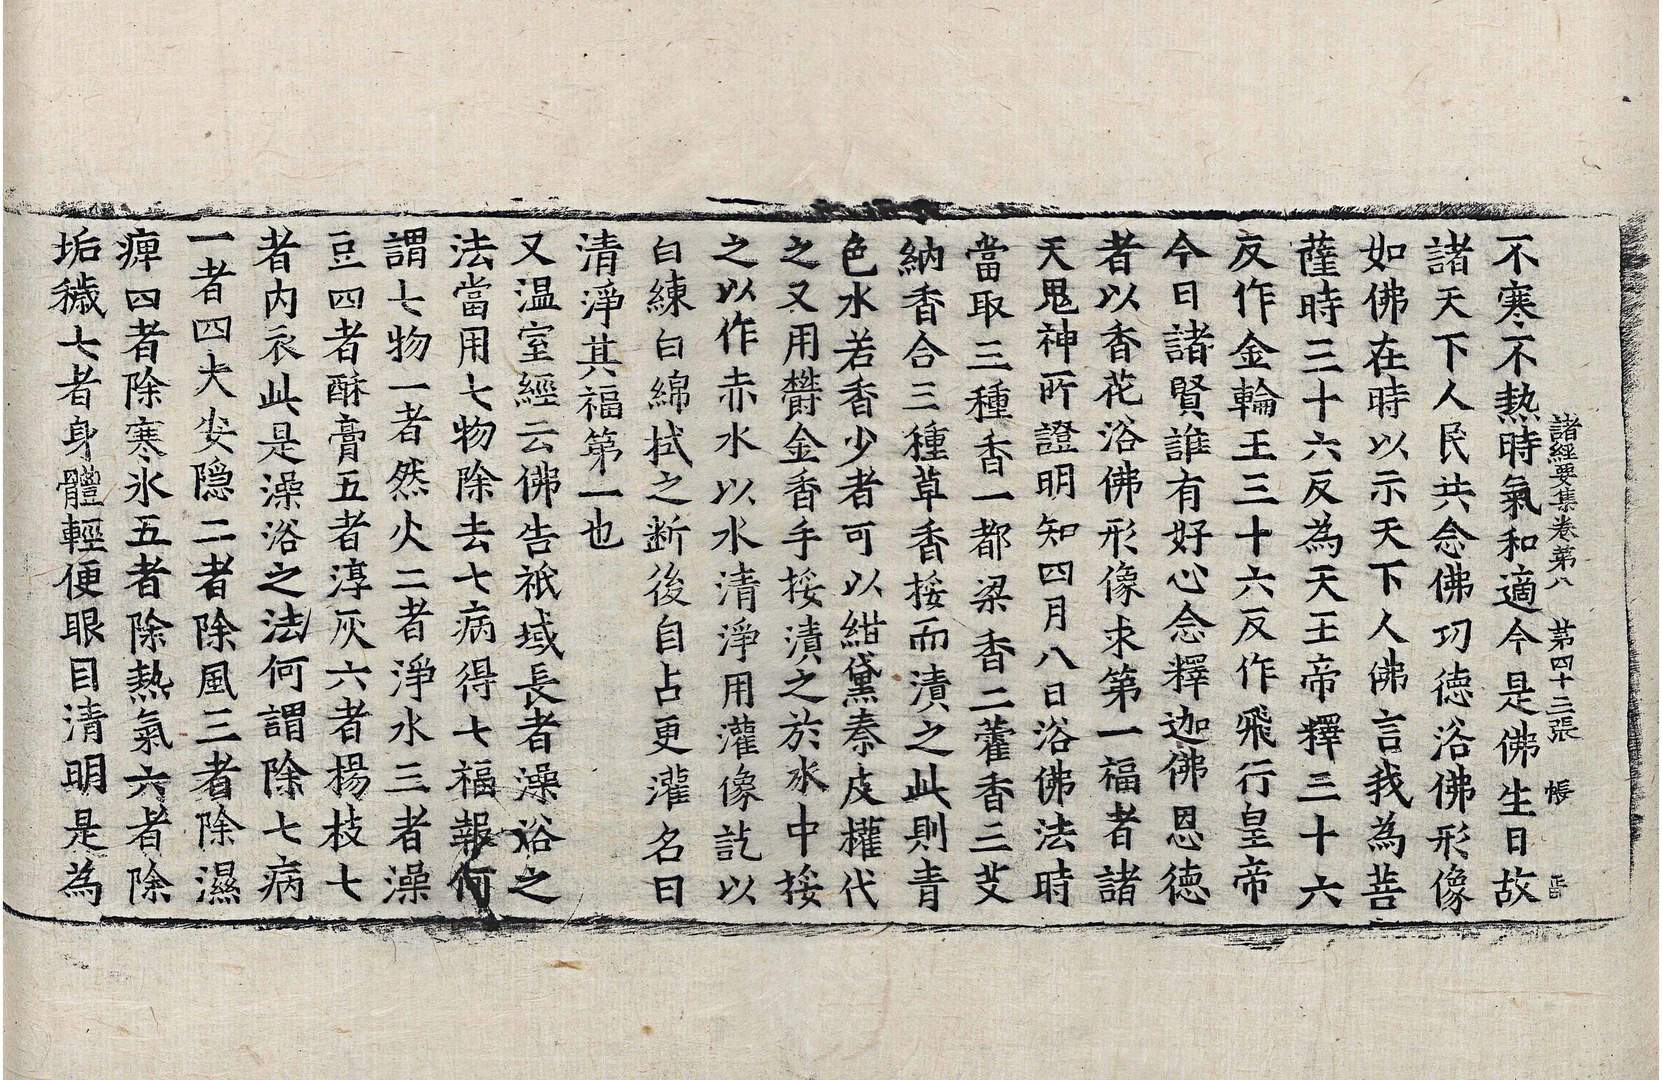 諸經要集卷第八 第四十三張 帳
不寒不熱時氣和適今是佛生日故
諸天下人民共念佛功德浴佛形像
如佛在時以示天下人佛言我為菩
薩時三十六反為天王帝釋三十六
反作金輪王三十六反作飛行皇帝
今日諸賢誰有好心念釋迦佛恩德
者以香花浴佛形像求第一福者諸
天鬼神所證明知四月八日浴佛法時
當取三種香一都梁香二藿香三艾
納香合三種草香挼而漬之此則青
色水若香少者可以紺黛秦皮權代
之又用欝金香手挼漬之於水中挼
之以作赤水以水清淨用灌像訖以
白練白綿拭之断後自占更灌名曰
清淨其福第一也
又温室經云佛告祇域長者澡浴之
法當用七物除去七病得七福報何
謂七物一者然火二者淨水三者澡
豆四者酥膏五者淳灰六者楊枝七
者内衣此是澡浴之法何謂除七病
一者四大安隱二者除風三者除濕
痺四者除寒氷五者除熱氣六者除
垢穢七者身體輕便眼目清明是為